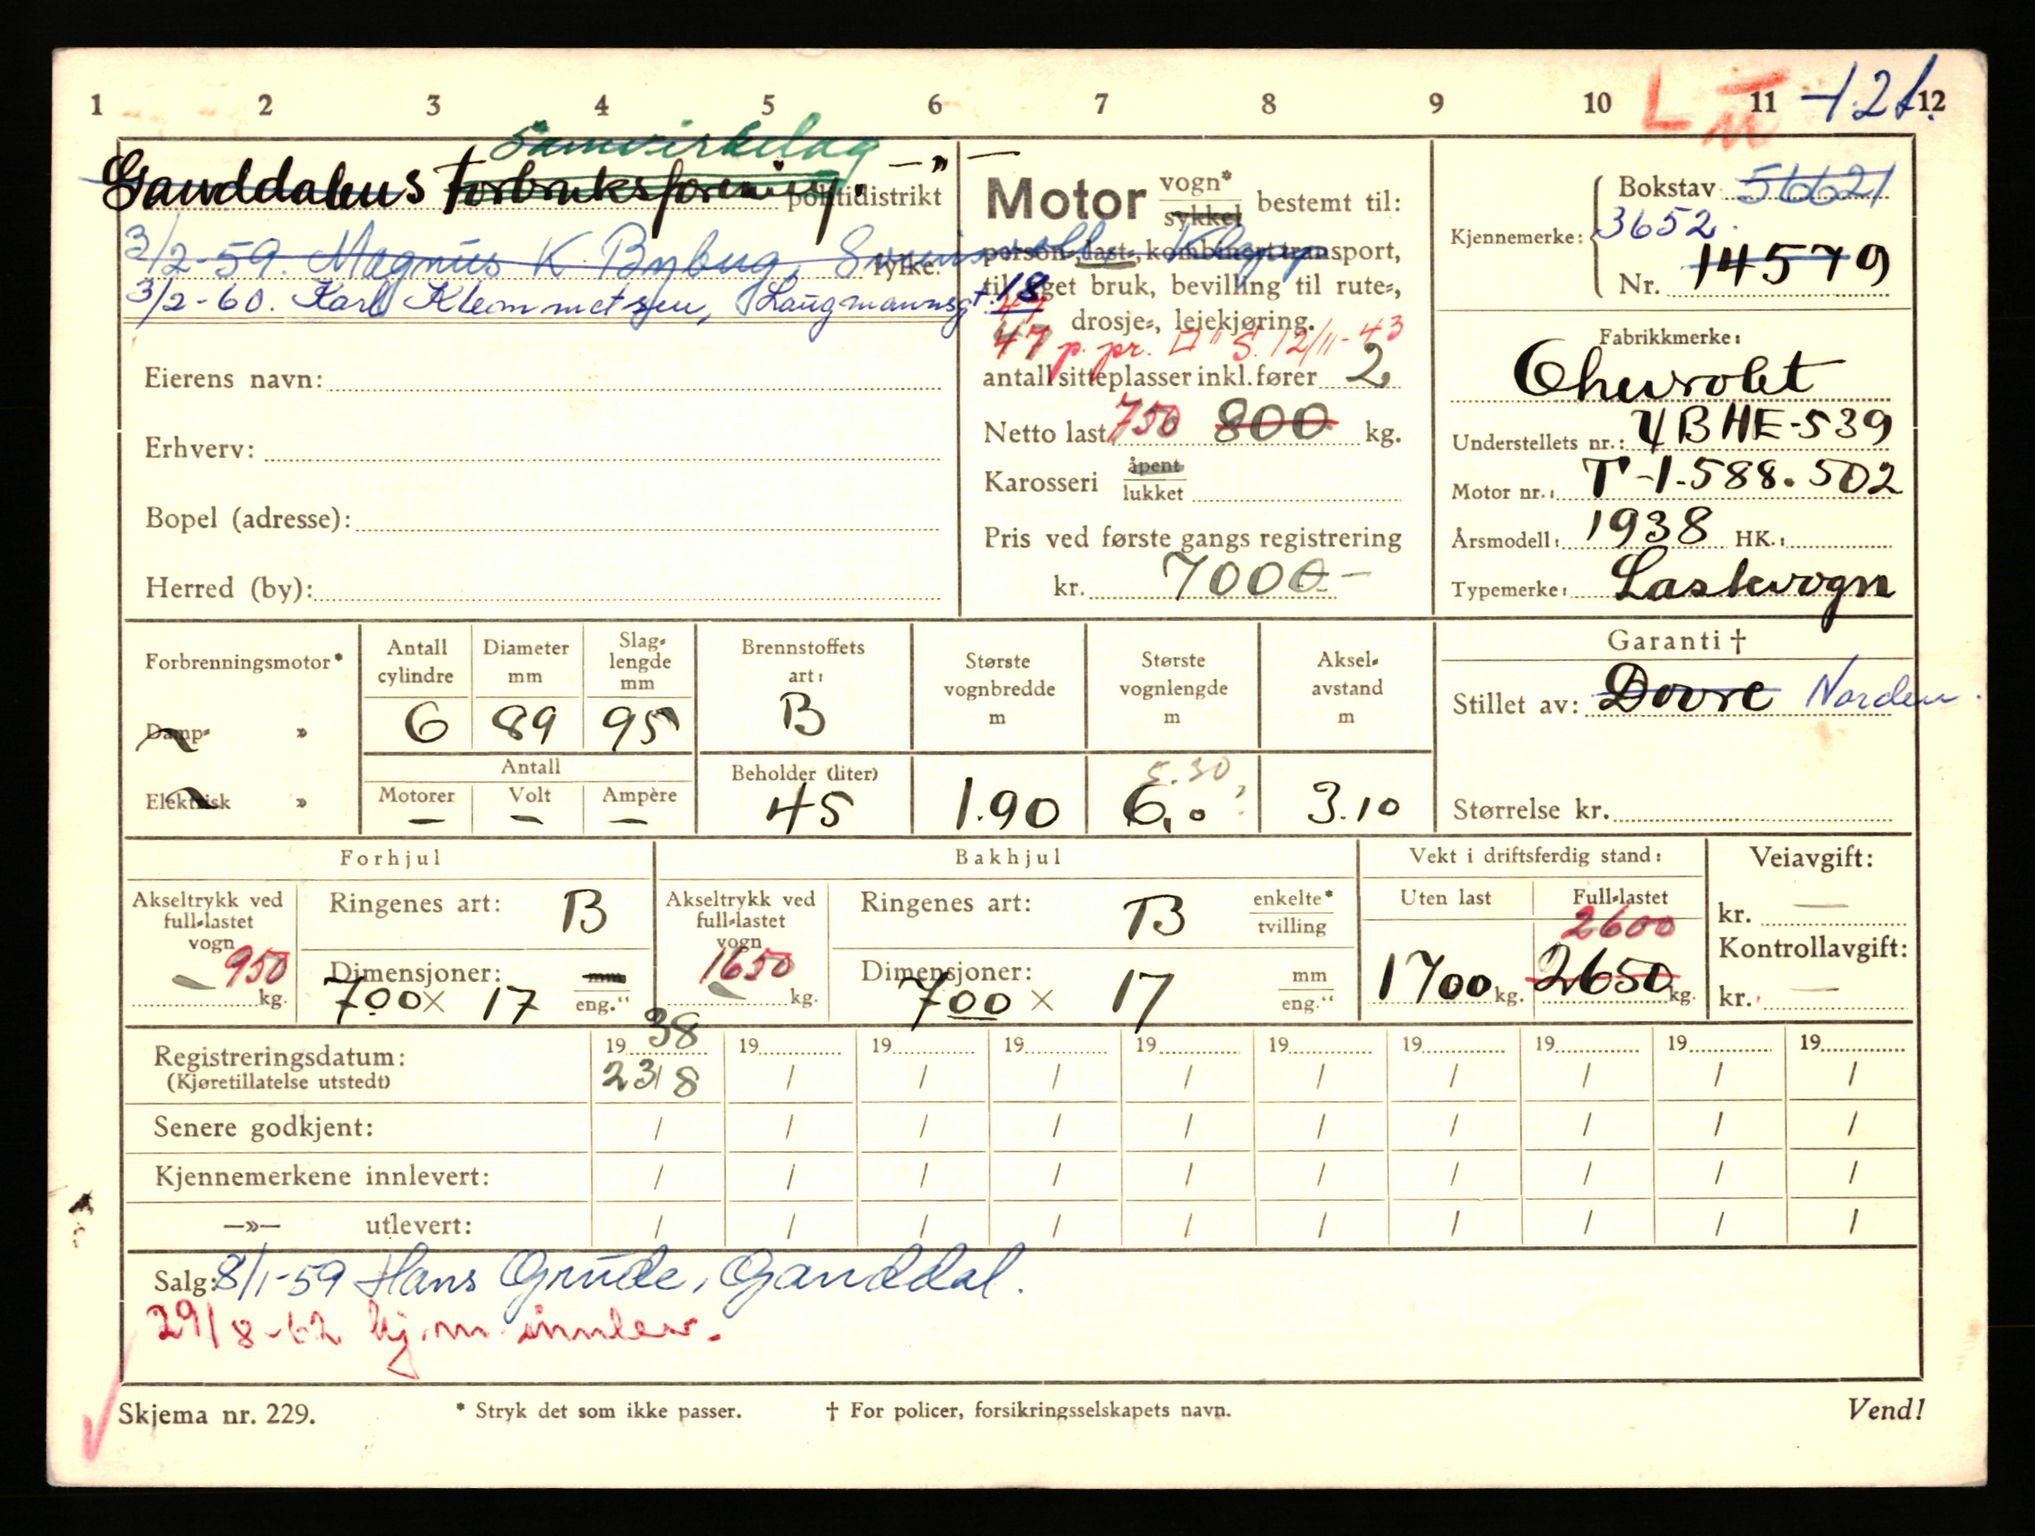 1 2 3 4 5 6 7 8 9 10 11 12
L
-121.
Samvirkelag
Ganddalens Forbruksforening. politidistrikt
—"—
3/2-59. Magnus K. fylke.
3/2-60. Karl Klemmetsen, Laugmannsgt. 18
Eierens navn:
Erhverv:
Bopel (adresse):
Herred (by):
Motor vogn* sykkel bestemt til:
person-, last-, kombinert transport,
til eget bruk, bevilling til rute-,
drosje-, leiekjøring.
47 p. pr. S. 12/11-43
antall sitteplasser inkl. fører 2
Netto last 750 800 kg.
Karosseri åpent lukket
Pris ved første gangs registrering
kr. 7000-
Bokstav 56621
Kjennemerke: 3652.
Nr. 14579
Fabrikkmerke:
Chevrolet
Understellets nr.: 4BHE-539
Motor nr.: T-1.588.502
Årsmodell: 1938 HK.:
Typemerke: Lastevogn
Forbrenningsmotor*
Damp- »
Elektrisk »
Antall cylindre
6
Diameter mm
89
Slaglengde mm
95
Antall
Motorer Volt Ampère
— — —
Brennstoffets art:
B
Beholder (liter)
45
Største vognbredde m
1.90
Største vognlengde m
5.30
6,0
Akselavstand m
3.10
Garanti †
Stillet av: Dovre Norden.
Størrelse kr.
Forhjul
Akseltrykk ved full-lastet vogn
950 kg.
Ringenes art: B
Dimensjoner: mm
700 x 17 eng."
Bakhjul
Akseltrykk ved full-lastet vogn
1650 kg.
Ringenes art: B enkelte* tvilling
Dimensjoner: mm
700 x 17 eng."
Vekt i driftsferdig stand:
Uten last
1700 kg.
Full-lastet
2600
2650 kg.
Veiavgift:
kr. —
Kontrollavgift:
kr. —
Registreringsdatum: 19 38 19 19 19 19 19 19 19 19 19
(Kjøretillatelse utstedt) 23/8 / / / / / / / / /
Senere godkjent: / / / / / / / / / /
Kjennemerkene innlevert: / / / / / / / / / /
—»— utlevert: / / / / / / / / / /
Salg: 8/1-59 Hans Grude, Ganddal.
29/8-62 kj.m. innlev.
Skjema nr. 229. * Stryk det som ikke passer. † For policer, forsikringsselskapets navn. Vend!